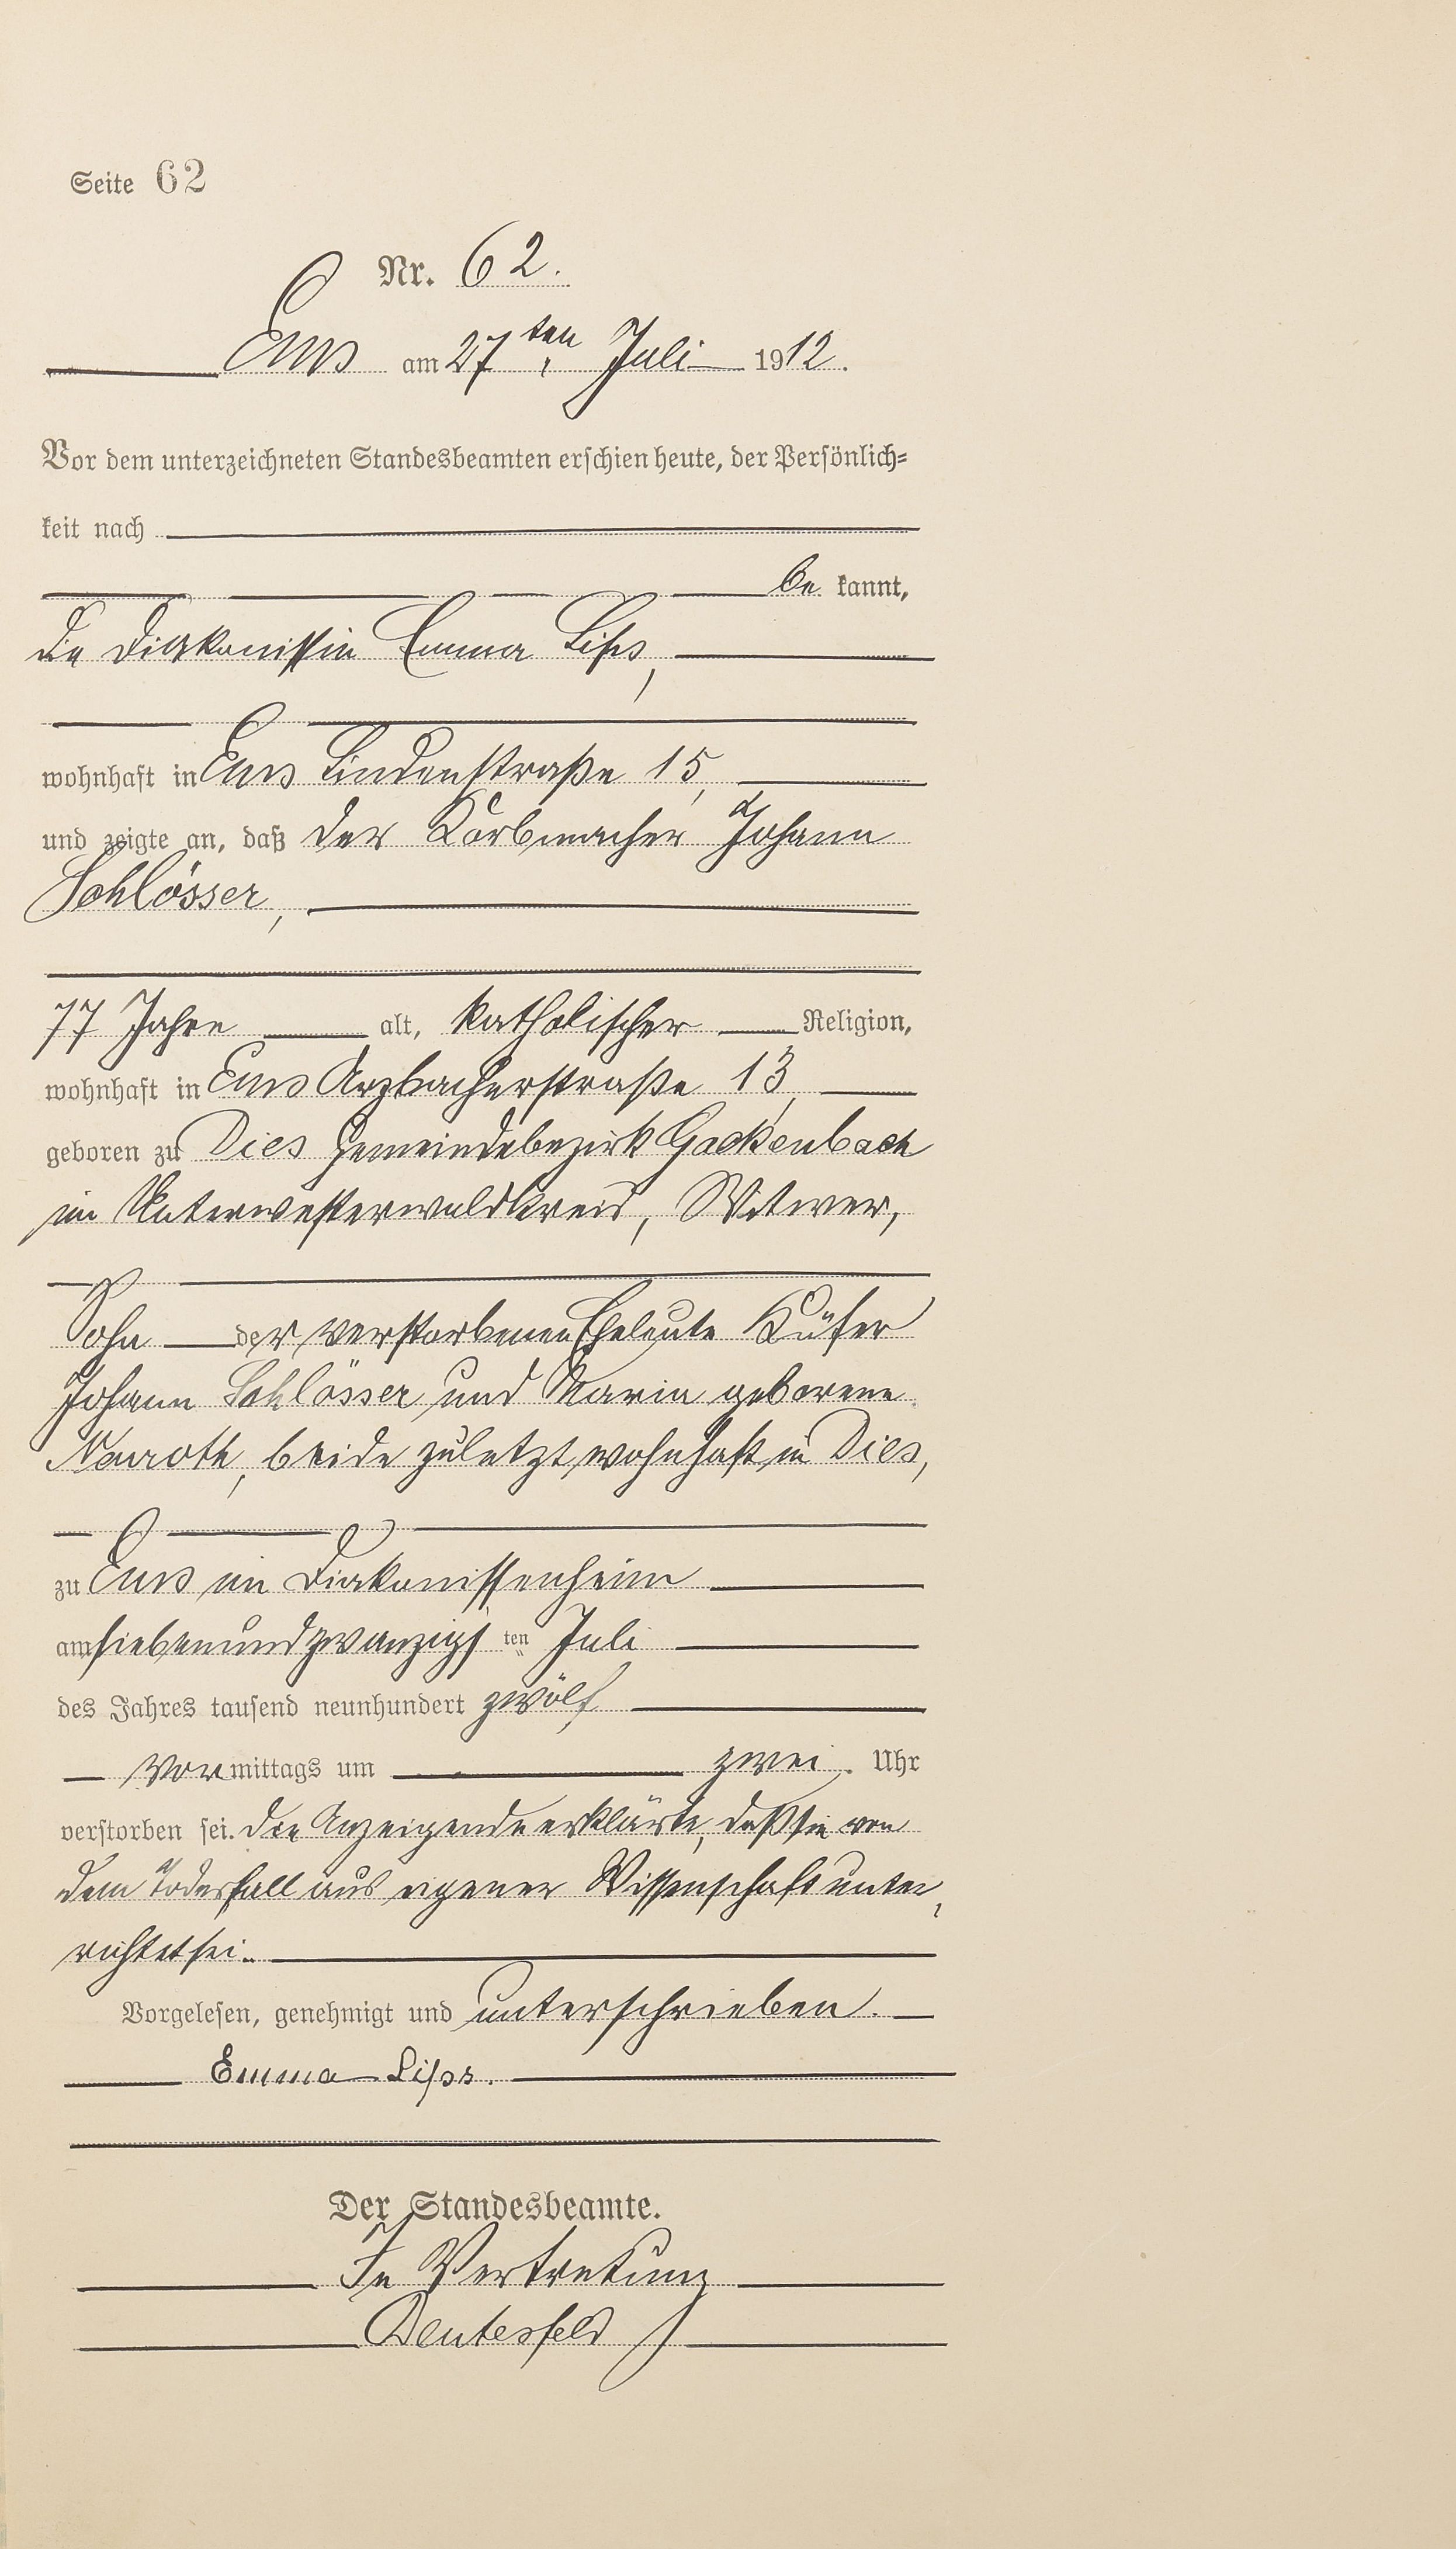 Seite 62
Nr. 62.
Ems am 27ten Juli 1912.
Vor dem unterzeichneten Standesbeamten erschien heute, der Persönlich=
keit nach
be kannt,
die Diakonissin Emma
wohnhaft in Ems Lindenstraße 15,
und zeigte an, daß der Korbmacher Johann
Schlösser,
77 Jahre alt, katholischer Religion,
wohnhaft in Ems Arzbacherstraße 13,
geboren zu Dies Gemeindebezirk Gackenbach
im Unterwesterwaldkreis, Witwer,
Sohn der verstorbenen Eheleute Küfer
Johann Schlösser und Maria geborene
Nauroth, beide zuletzt wohnhaft in Dies,
zu Ems im Diakonissenheim
am siebenundzwanzigsten Juli
des Jahres tausend neunhundert zwölf
Vormittags um zwei Uhr
verstorben sei. Die Anzeigende erklärte, daß sie von
dem Todesfall aus eigener Wissenschaft unter,
richtet sei.
Vorgelesen, genehmigt und unterschrieben.
Emma
Der Standesbeamte.
In Vertretung